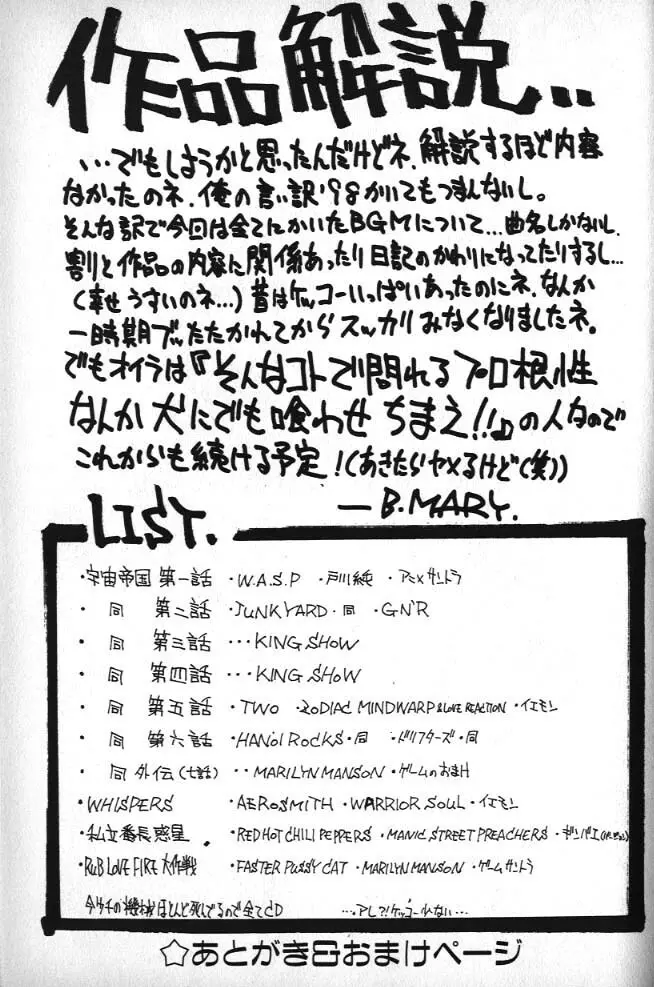 作品解説..
...でもしようかと思ったんだけどネ、解説するほど内容
なかったのネ、俺の言い訳'98かいてもつまんないし。
そんな訳で今回は全てにかいたBGMについて...曲名しかないし、
割と作品の内容に関係あったり日記のかわりになってたりするし...
(幸せうすいのネ...)昔はケッコーいっぱいあったのにネ、なんか
一時期ブッたたかれてからスッカリみなくなりましたネ。
でもオイラは『そんなコトで問れるプロ根性
なんか犬にでも喰わせちまえ!!』の人なので
これからも続ける予定!(あきたらヤメるけど(笑))
—B.MARY.
LIST.
・宇宙帝国 第一話 ・W.A.S.P ・戸川純 ・アニメサントラ
・ 同 第二話 ・JUNKYARD ・同 ・GN'R
・ 同 第三話 ・・・KING SHOW
・ 同 第四話 ・・・KING SHOW
・ 同 第五話 ・TWO ・ZODIAC MINDWARP & LOVE REACTION ・イエモン
・ 同 第六話 ・HANOI ROCKS ・同 ・ドリフターズ ・同
・ 同 外伝(七話) ・・MARILYN MANSON ・ゲームのおまけ
・WHISPERS ・AEROSMITH ・WARRIOR SOUL ・イエモン
・私立番長惑星. ・RED HOT CHILI PEPPERS ・MANIC STREET PREACHERS
・RUB LOVE FIRE 大作戦 ・FASTER PUSSY CAT ・MARILYN MANSON ・ゲームサントラ
今ウチの機械ほとんど死んでるので全てCD ...アレ?!ケッコー少ない...
☆あとがき&おまけページ